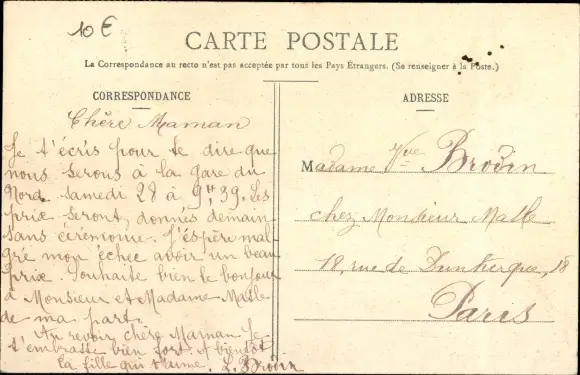 10 €
CARTE POSTALE
La Correspondance au recto n'est pas acceptée par tous les Pays Étrangers. (Se renseigner à la Poste.)
CORRESPONDANCE
Chère Maman
Je t'écris pour te dire que
nous serons à la gare du
Nord samedi 28 à 9H,39. Les
prix seront donnés demain
sans cérémonie. J'espère mal-
gré mon échec avoir un beau
prix. Souhaite bien le bonjour
à Monsieur et Madame Malle
de ma part.
Au revoir chère Maman je
t'embrasse bien fort. A bientôt
ta fille qui t'aime. L. Brodin
ADRESSE
Madame Vve Brodin
chez Monsieur Malle
18, rue de Dunkerque, 18
Paris